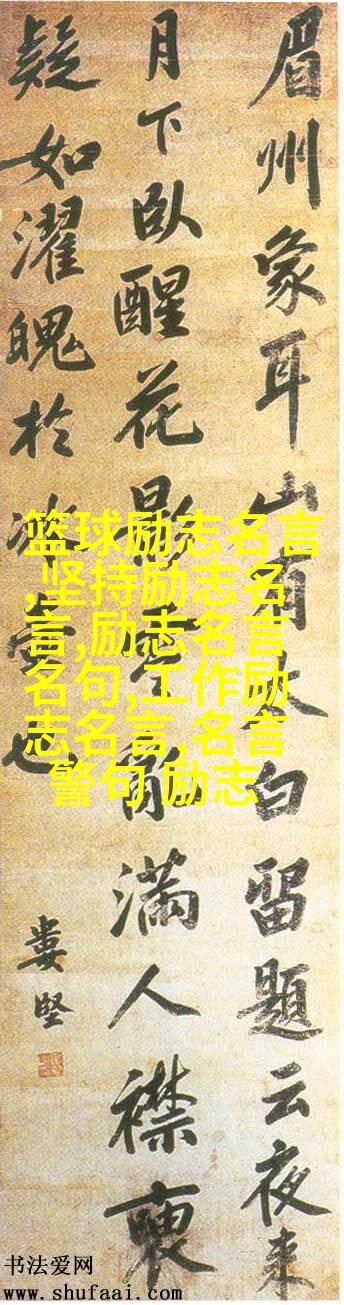 眉州象耳山有太白留題云夜来
月下臥醒花影零亂滿人襟
疑如濯魄於冰壺也
婁堅
篮球励志名言
,坚持励志名
言,励志名言
名句,工作励
志名言,名言
警句 励志
书法爱网
www.shufaai.com